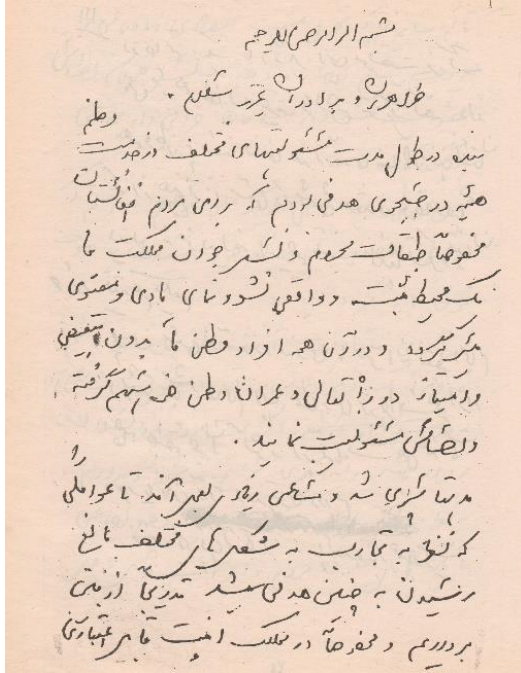 بسم الله الرحمن الرحیم
خواهران و برادران عزیز سلام.
بنده در طول مدت مسئولیتهای مختلف در خدمت وطنم
همیشه در جستجوی هدفی بودم که برای مردم افغانستان
مخصوصاً طبقات محروم و نسل جوان مملکت ما
یک محیط مثبت و واقعی نشو و نمای مادی و معنوی
میسر گردد و در آن همه افراد وطن ما بدون تبعیض
و امتیاز در راه تعالی و عمران وطن خود سهم گرفته
و احساس مسئولیت نمایند.
مدتها سپری شد و مساعی زیادی بعمل آمد تا عواملی را
که نظر به تجارب به شکل های مختلف مانع
رسیدن به چنین هدفی میشد تدریجاً از بین
برداریم و مخصوصاً در مملکت امنیت قابل اعتباری